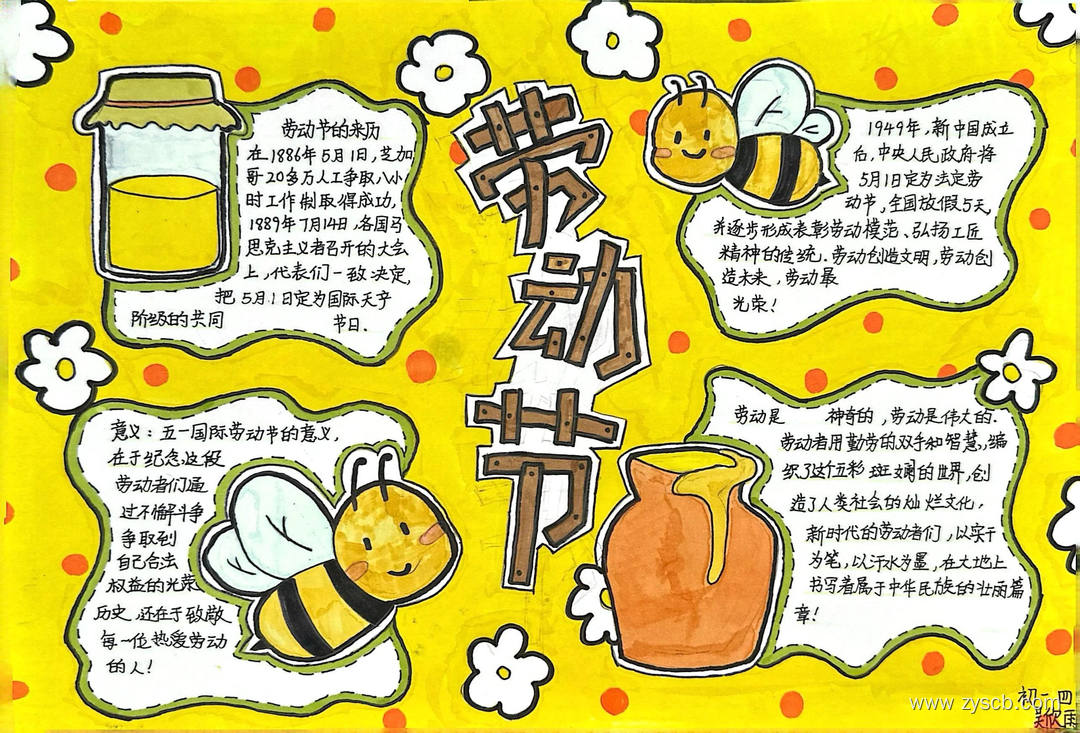 劳动节
劳动节的来历
在1886年5月1日,芝加
哥20多万人工争取八小
时工作制取得成功.
1889年7月14日,各国马
思克主义者召开的大会
上,代表们一致决定,
把5月1日定为国际无产
阶级的共同 节日.
1949年,新中国成立
后,中央人民政府将
5月1日定为法定劳
动节,全国放假5天,
并逐步形成表彰劳动模范、弘扬工匠
精神的传统、劳动创造文明,劳动创
造未来,劳动最
光荣!
意义:五一国际劳动节的意义,
在于纪念这假
劳动者们通
过不懈斗争
争取到
自己合法
权益的光荣
历史,还在于致敬
每一位热爱劳动
的人!
劳动是 神奇的,劳动是伟大的.
劳动者用勤劳的双手和智慧,编
织了这个五彩斑斓的世界,创
造了人类社会的灿烂文化,
新时代的劳动者们,以实干
为笔,以汗水为墨,在大地上
书写着属于中华民族的壮丽篇
章!
初一四
吴欣雨
www.zyscb.com